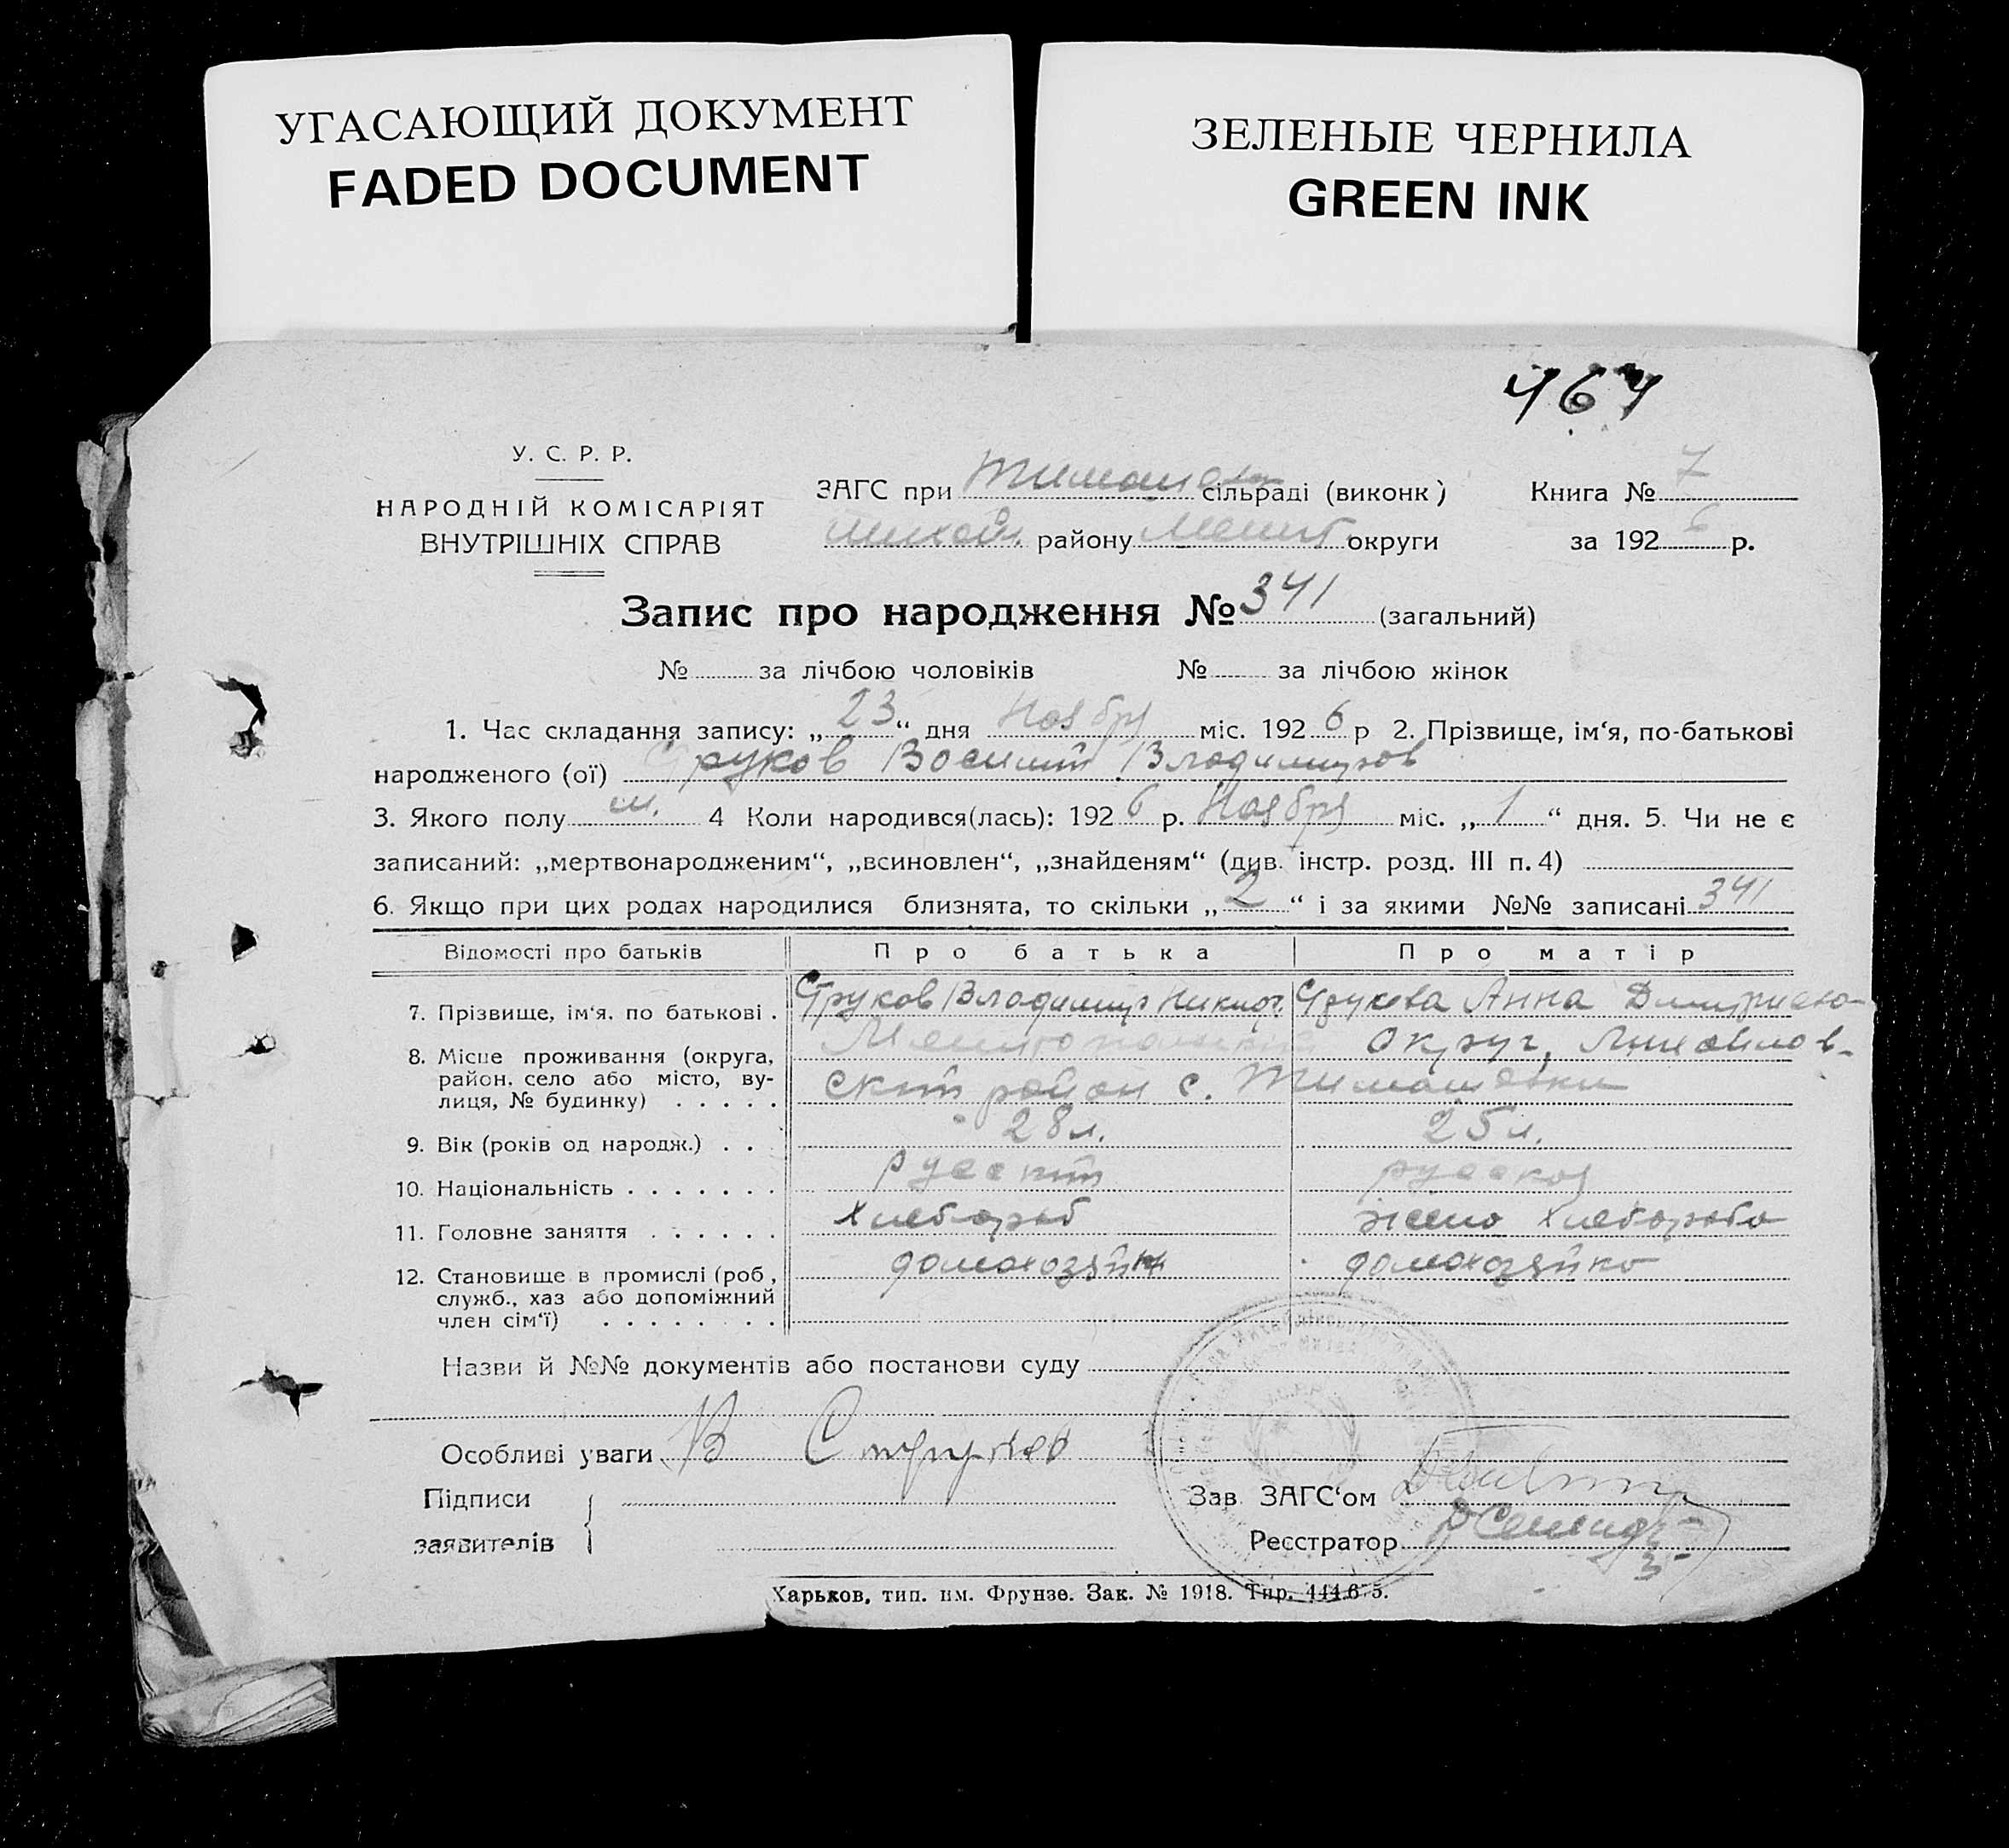 УГАСАЮЩИЙ ДОКУМЕНТ
FADED DOCUMENT
ЗЕЛЕНЫЕ ЧЕРНИЛА
GREEN INK
У. С. Р. Р.
НАРОДНІЙ КОМІСАРІЯТ
ВНУТРІШНІХ СПРАВ
ЗАГС при Тимошев сільраді (виконк) Книга № 7
Михайл. району Мелит. округи за 192 6 р.
Запис про народження № 341 (загальний)
№ за лічбою чоловіків № за лічбою жінок
1. Час складання запису: „ 23 “ дня Ноября міс. 192 6 р 2. Прізвище, ім‘я, по-батькові
народженого (ої) Струков Василий Владимиров
3. Якого полу м. 4 Коли народився(лась): 192 6 р. Ноября міс. „ 1 “ дня. 5. Чи не є
записаний: „мертвонародженим“, „всиновлен“, „знайденям“ (див. інстр. розд. III п. 4)
6. Якщо при цих родах народилися близнята, то скільки „ 2 “ і за якими №№ записані 341
Відомості про батьків Про батька Про матір
7. Прізвище, ім‘я. по батькові . Струков Владимир Никиф. Струкова Анна Дмитриево-
8. Місце проживання (округа, Мелитопольский округ, Михайлов-
район. село або місто, ву- ский район с. Тимошевки
лиця, № будинку) . . . . .
9. Вік (років од народж.) . . 28 л. 25 л.
10. Національність . . . . . . . русский русская
11. Головне заняття . . . . . . хлебороб жена хлебороба
12. Становище в промислі (роб., домохозяин домохозяйка
служб., хаз або допоміжний
член сім‘ї) . . . . . . . .
Назви й №№ документів або постанови суду
Особливі уваги В Струков
Підписи
заявителів
Зав. ЗАГС‘ом
Реєстратор
Харьков, тип. им. Фрунзе. Зак. № 1918. Тир. 444.675.